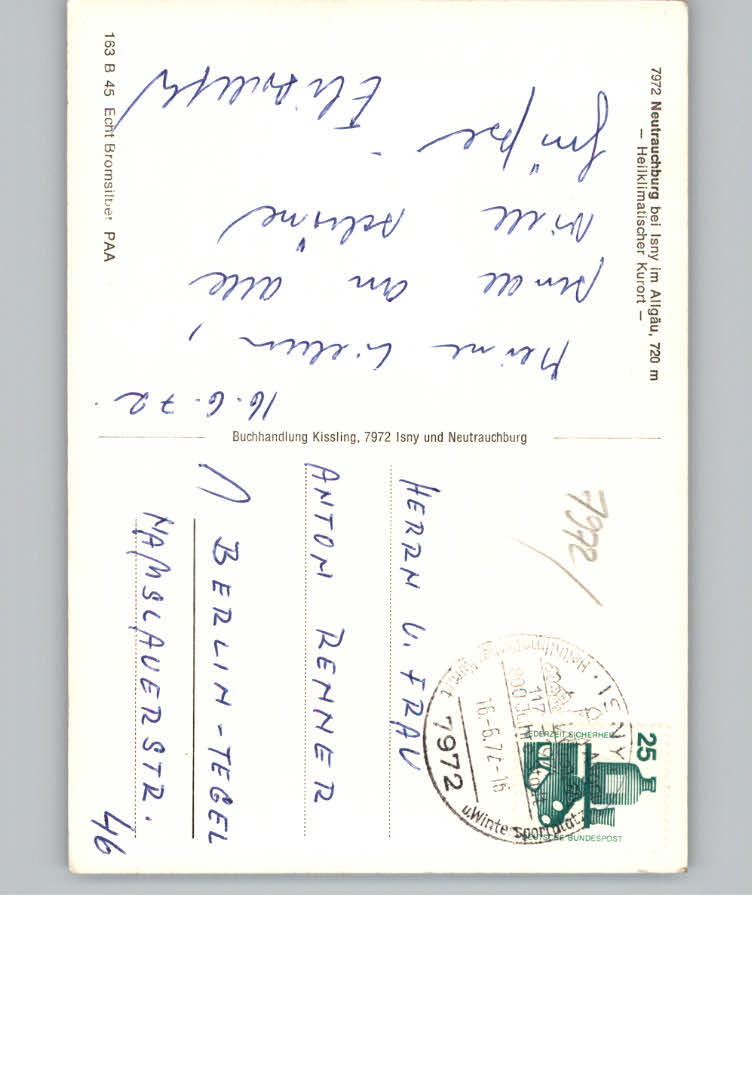 7972 Neutrauchburg bei Isny im Allgäu, 720 m
– Heilklimatischer Kurort –
16.6.72.
Meine Lieben,
sende an alle
viele schöne
Grüße
Elisabeth
163 B 45 Echt Bromsilber PAA
Buchhandlung Kissling, 7972 Isny und Neutrauchburg
7972/
25
JEDERZEIT SICHERHEIT
DEUTSCHE BUNDESPOST
ISNY
Heilklimatischer Kurort
800 Jahre
16.6.72-16
7972
u. Wintersportplatz
HERRN U. FRAU
ANTON RENNER
1 BERLIN-TEGEL
NAMSLAUERSTR.
46